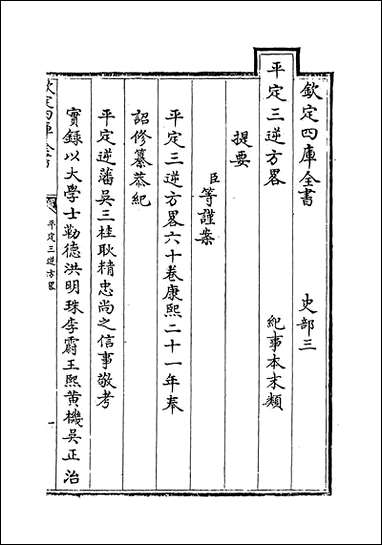 欽定四庫全書 史部三
平定三逆方畧 紀事本末類
提要
臣等謹案
平定三逆方畧六十卷康熙二十一年奉
詔修纂恭紀
平定逆藩吳三桂耿精忠尚之信事敬考
實錄以大學士勒德洪明珠李霨王熙黃機吳正治
欽定四庫全書
平定三逆方畧
一